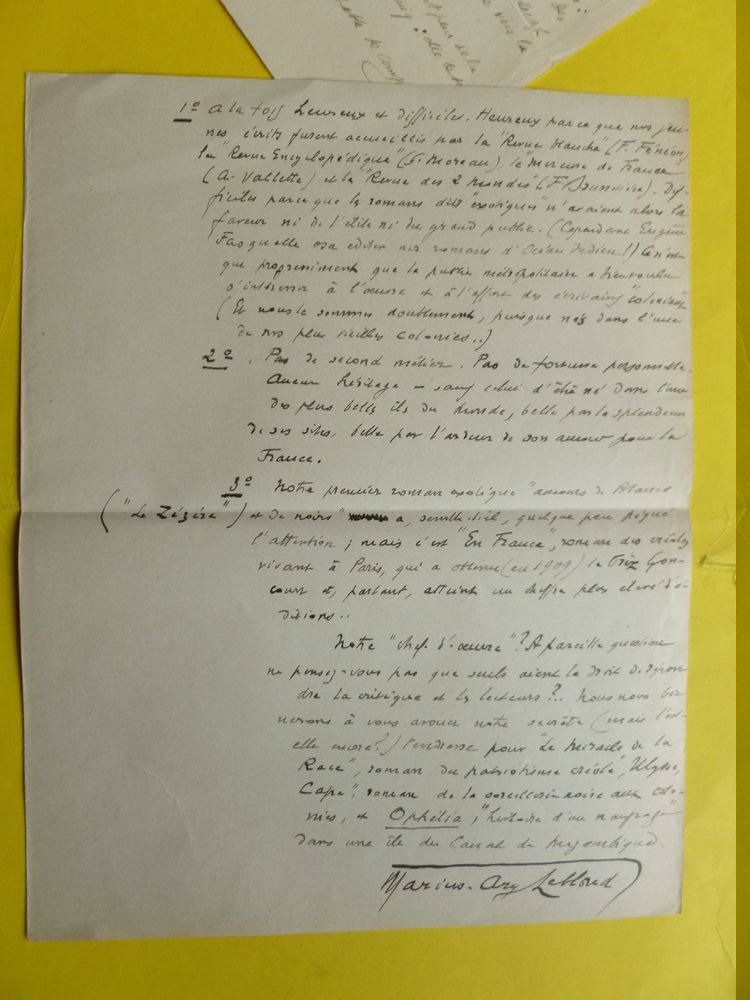 1º A la fois heureux et difficiles. Heureux parce que nos jeu-
nes écrits furent accueillis par la "Revue Blanche" (F. Fénéon)
la "Revue Encyclopédique" (G. Moreau), le "Mercure de France"
(A. Vallette) et la "Revue des 2 Mondes" (F. Brunetière). Dif-
ficiles parce que les romans dits "exotiques" n'avaient alors la
faveur ni de l'élite ni du grand public. (Cependant Eugène
Fasquelle osa éditer nos romans d'Océan Indien!) Ce n'est
que progressivement que le public métropolitain a bien voulu
s'intéresser à l'œuvre et à l'effort des écrivains "coloniaux"
(Et nous le sommes doublement, puisque nés dans l'une
de nos plus vieilles colonies..)
2º. Pas de second métier. Pas de fortune personnelle.
Aucun héritage – sauf celui d'être né dans l'une
des plus belles îles du monde, belle par la splendeur
de ses sites, belle par l'ardeur de son amour pour la
France.
3º Notre premier roman exotique "amours de Blancs
("Le Zézère") et de noirs" a, semble-t-il, quelque peu piqué
l'attention ; mais c'est "En France", roman des créoles
vivant à Paris, qui a obtenu (en 1909) le Prix Gon-
court et, partant, atteint un chiffre plus élevé d'é-
ditions..
Notre "chef-d'œuvre"? A pareille question
ne pensez-vous pas que seuls aient le droit de répon
dre la critique et les lecteurs?.. Nous nous bor
nerons à vous avouer notre secrète (mais l'est-
elle encore?) tendresse pour "Le Miracle de la
Race", roman du patriotisme créole", Ulysse,
Cafre", roman de la sorcellerie noire aux colo-
nies, et Ophélia, "histoire d'un naufrage"
dans une île du Canal de Mozambique.
Marius-Ary Leblond